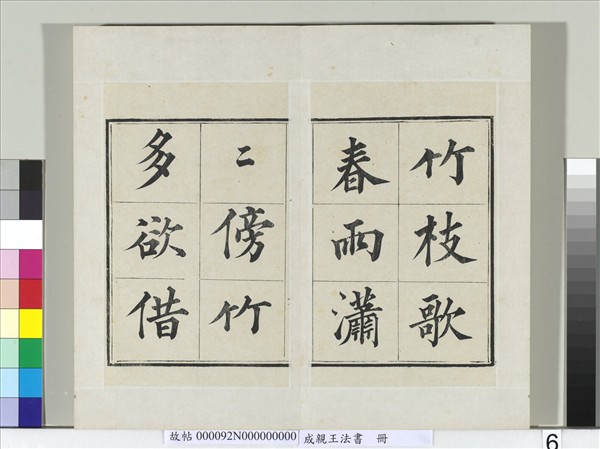 竹枝歌
春雨瀟
〻傍竹
多欲借
故帖 000092N000000000 成親王法書 冊
6